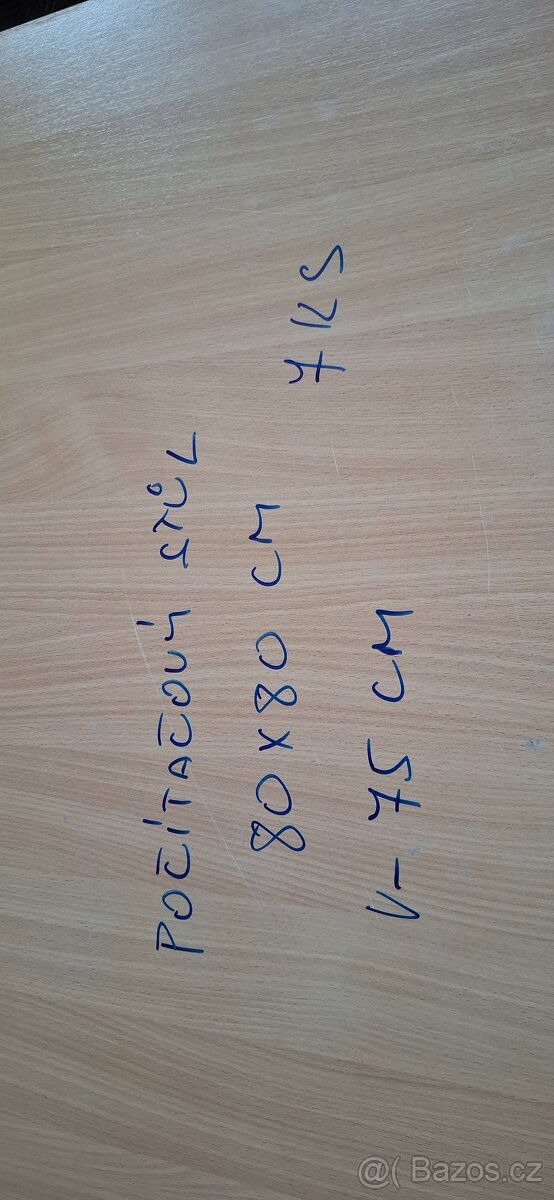 POČÍTAČOVÝ STŮL
80X80 CM 7 KS
V- 75 CM
@( Bazos.cz